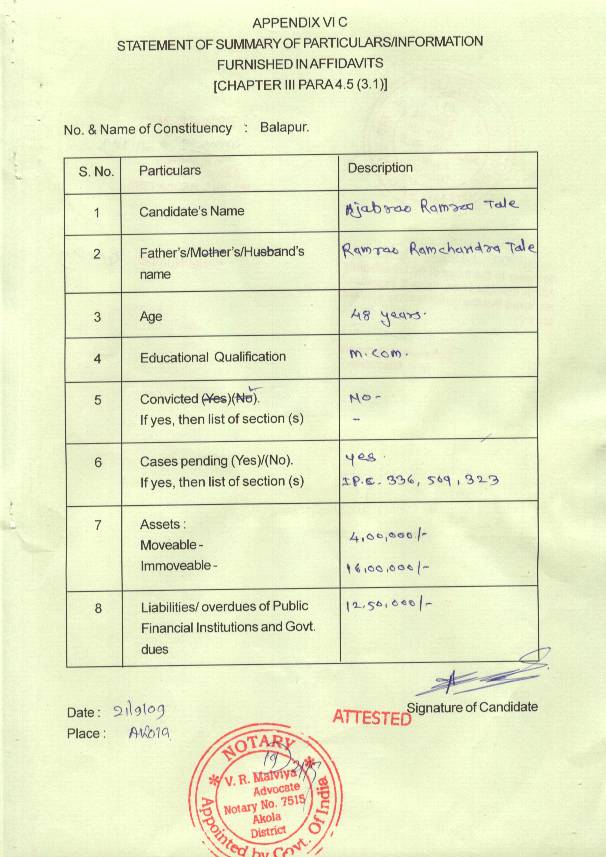 APPENDIX VI C
STATEMENT OF SUMMARY OF PARTICULARS/INFORMATION
FURNISHED IN AFFIDAVITS
[CHAPTER III PARA 4.5 (3.1)]
No. & Name of Constituency : Balapur.
S. No. Particulars Description
1 Candidate's Name Ajabrao Ramrao Tale
2 Father's/Mother's/Husband's Ramrao Ramchandra Tale
name
3 Age 48 years.
4 Educational Qualification M.com.
5 Convicted (Yes)(No). No-
If yes, then list of section (s) -
6 Cases pending (Yes)/(No). yes.
If yes, then list of section (s) I.P.C. 336, 509, 323
7 Assets :
Moveable - 4,00,000/-
Immoveable - 16,00,000/-
8 Liabilities/ overdues of Public 12,50,000/-
Financial Institutions and Govt.
dues
Signature of Candidate
Date : 21/9/09
ATTESTED
Place : Akola
NOTARY
V. R. Malviya
Advocate
Notary No. 7515
Akola
District
Appointed by Govt. Of India